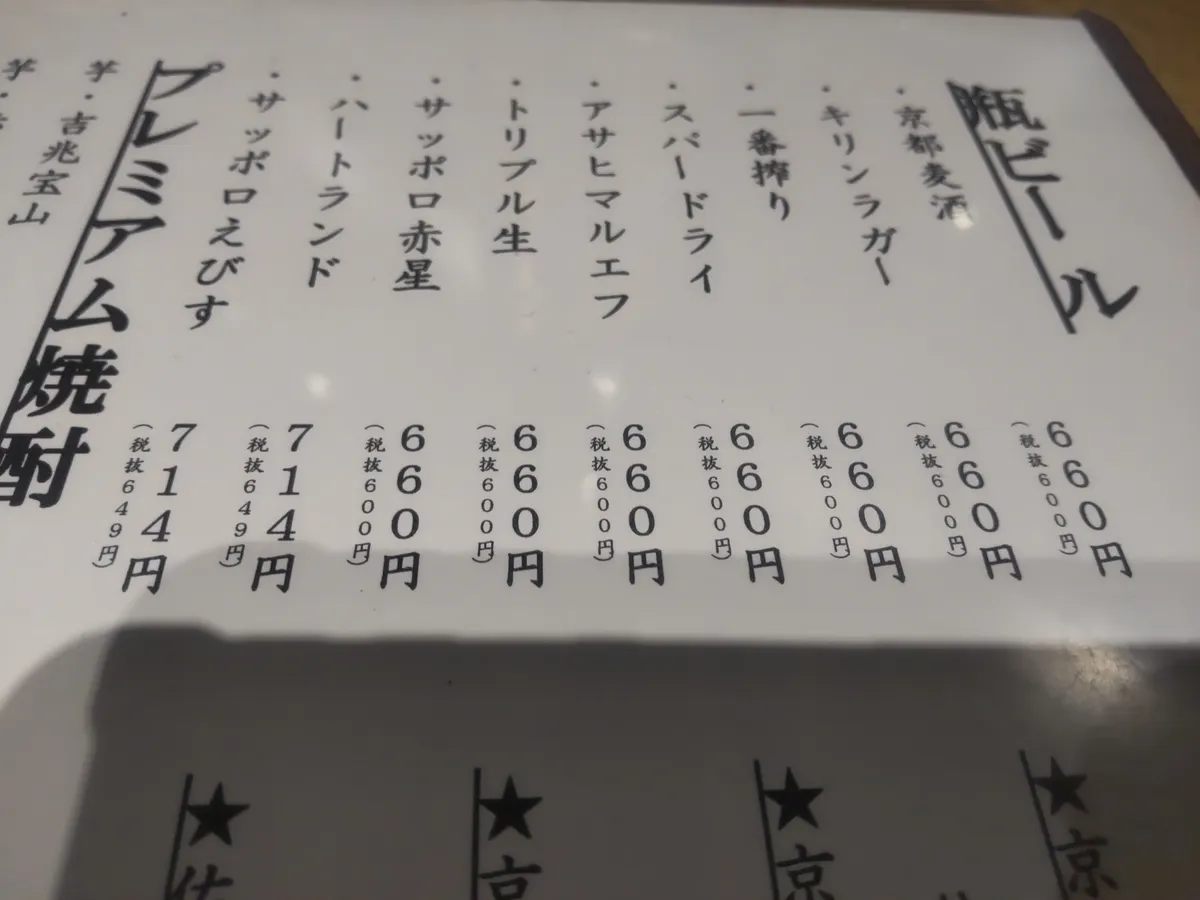 瓶ビール
・京都麦酒 660円(税抜600円)
・キリンラガー 660円(税抜600円)
・一番搾り 660円(税抜600円)
・スパードライ 660円(税抜600円)
・アサヒマルエフ 660円(税抜600円)
・トリプル生 660円(税抜600円)
・サッポロ赤星 660円(税抜600円)
・ハートランド 714円(税抜649円)
・サッポロえびす 714円(税抜649円)
プレミアム焼酎
芋・吉兆宝山
芋・
★京
★京
★京
★